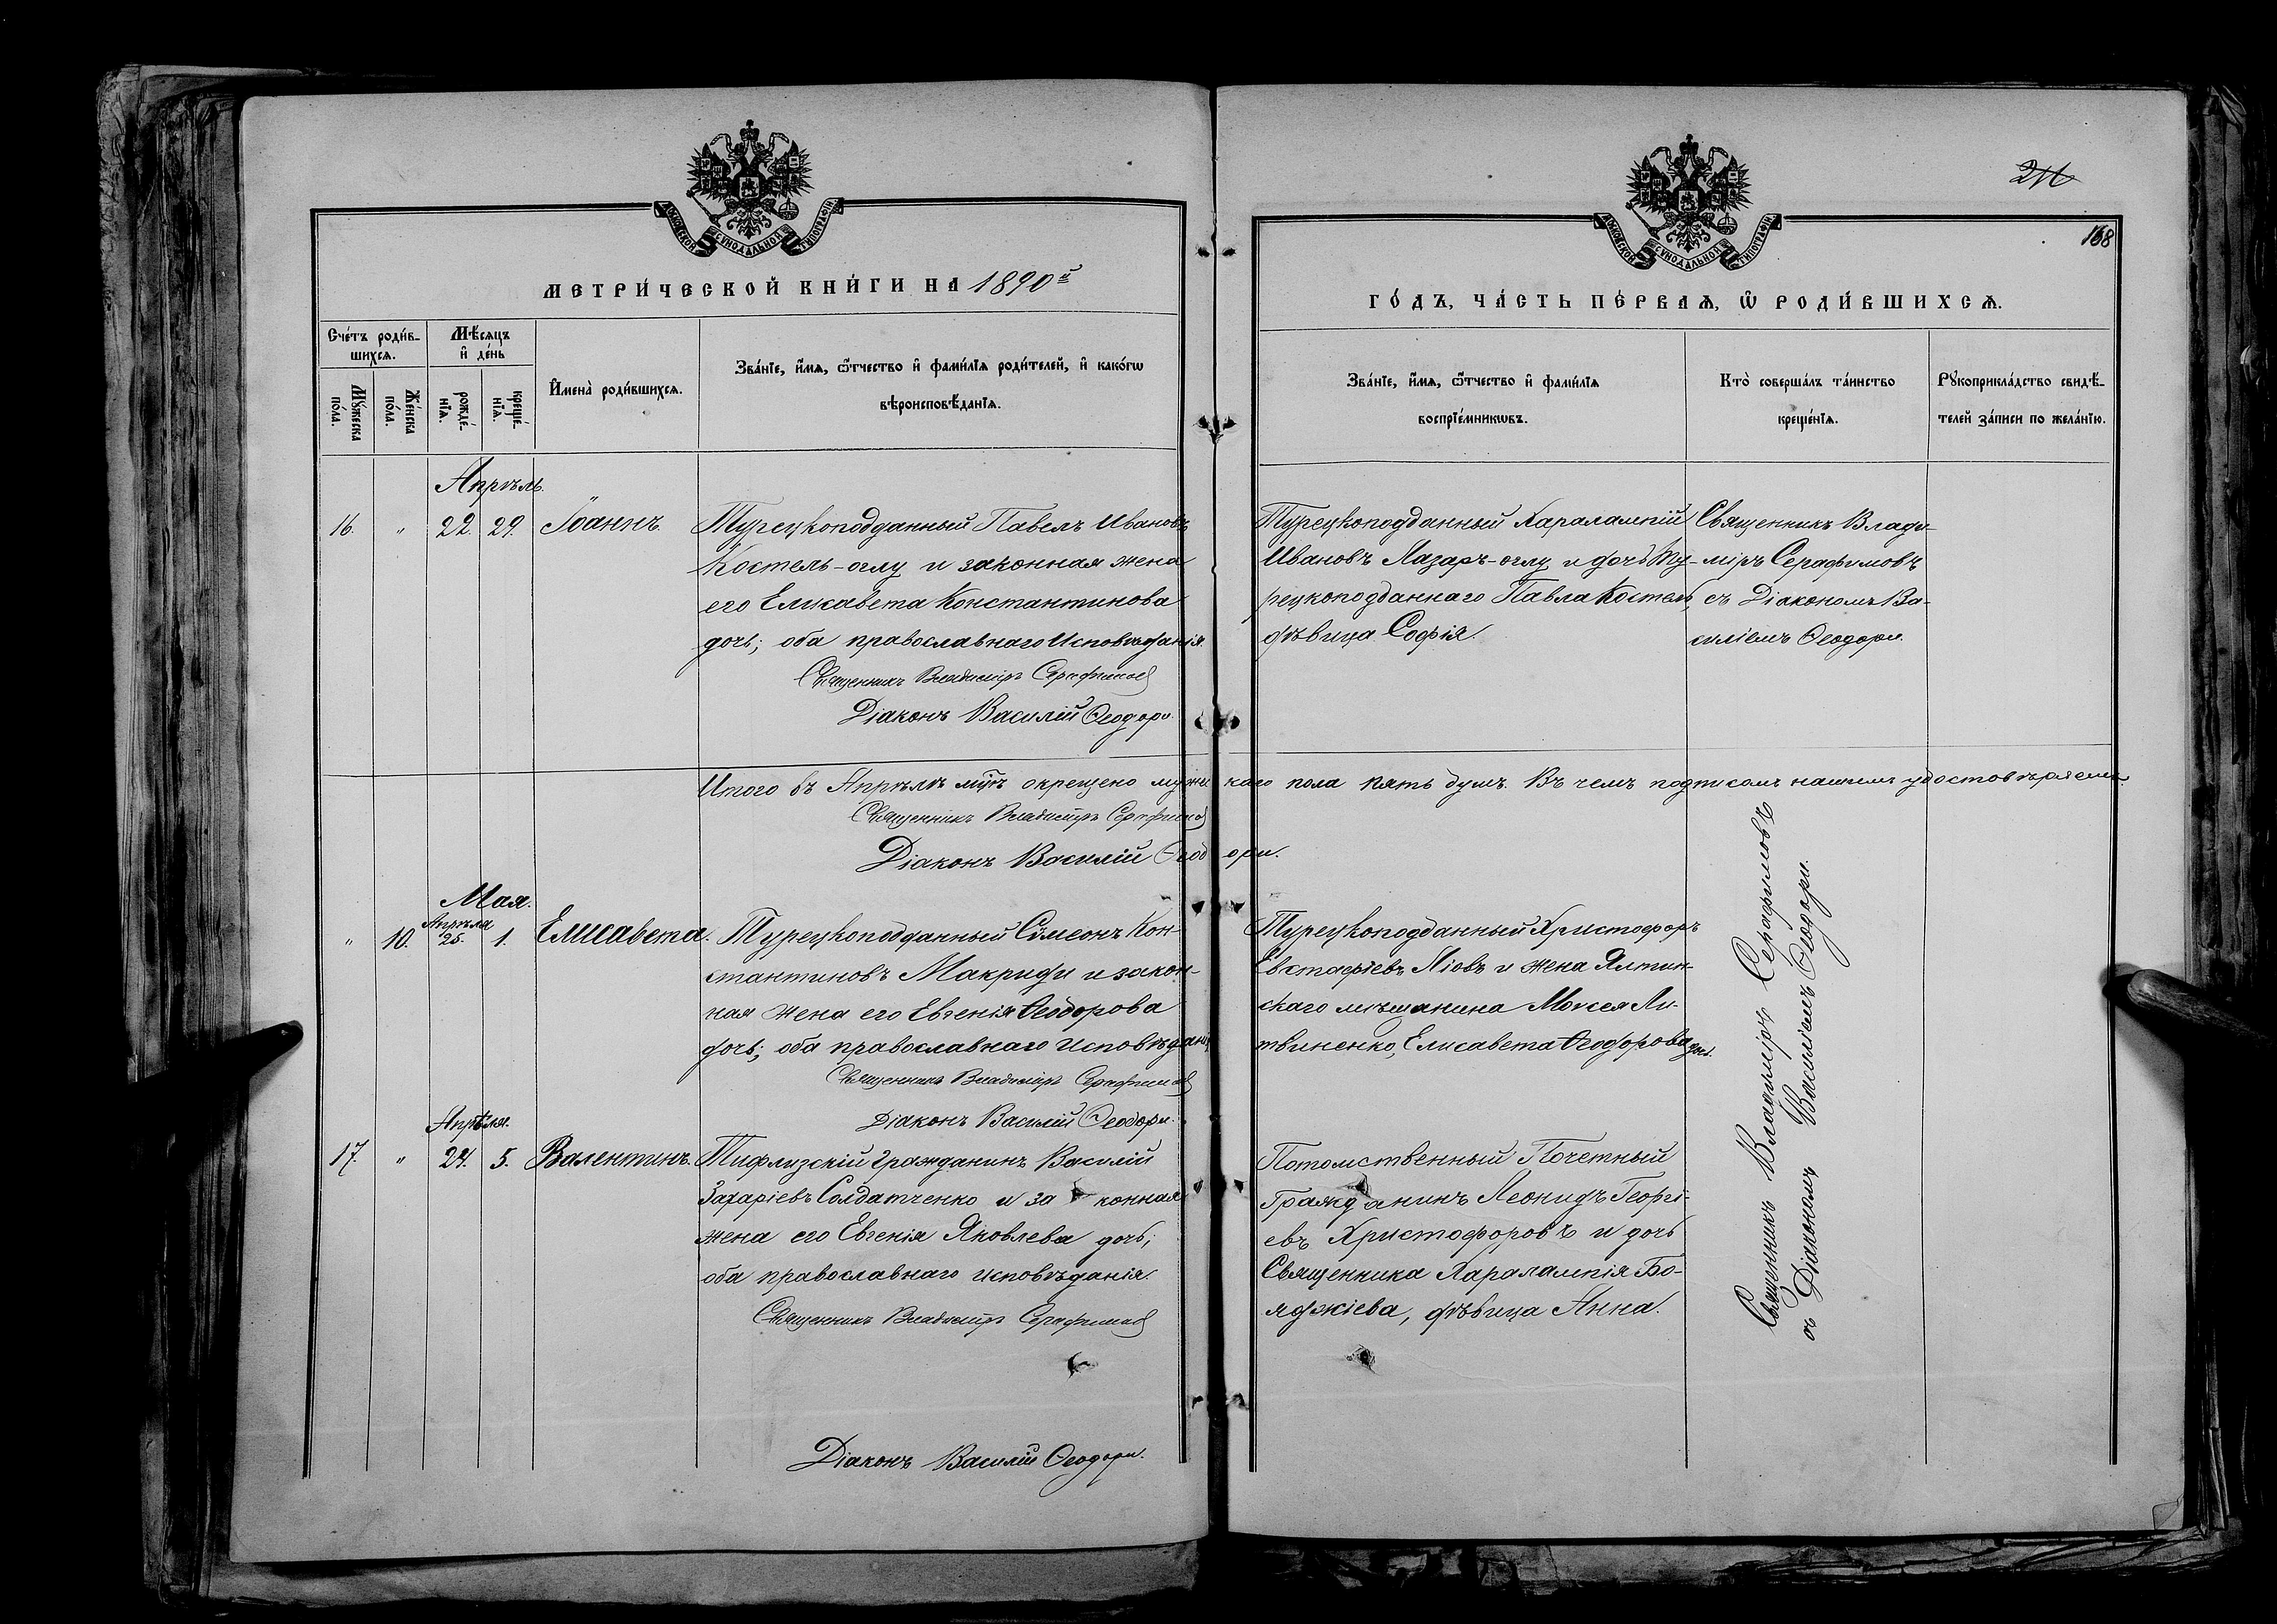 МОСКОВСКОЙ СУНОДАЛЬНОЙ ТИПОГРАФІИ
МЕТРИ́ЧЕСКОЙ КНИ́ГИ НА 1890й
Сче́тъ роди́в-
шихсѧ.
Мѣ́сѧцъ
и҆ де́нь
И҆мена̀ роди́вшихсѧ.
Зва́нїе, и҆́мѧ, ѻ҆́тчество и҆ фами́лїѧ роди́телей, и҆ како́гѡ
вѣроисповѣ́данїѧ.
Мꙋ́жеска
по́ла.
Же́нска
по́ла.
рожде́-
нїѧ.
креще́-
нїѧ.
Апрѣль.
16. " 22. 29. Іоаннъ Турецкоподданный Павелъ Ивановъ
Костель-оглу и законная жена
его Елисавета Константинова
дочь; оба православнаго исповѣданія.
Священникъ Владиміръ Серафимов
Діаконъ Василій Ѳеодори.
Итого въ Апрѣлѣ мцѣ окрещено мужскаго пола пять душъ. Въ чемъ подписомъ нашимъ удостовѣряемъ.
Священникъ Владиміръ Серафимов
Діаконъ Василій Ѳеодори.
Мая.
Апрѣля
" 10. 25. 1. Елисавета. Турецкоподданный Сѵмеонъ Кон-
стантиновъ Макриди и закон-
ная жена его Евгенія Ѳеодорова
дочь; оба православнаго исповѣданія
Священникъ Владиміръ Серафимов
Діаконъ Василій Ѳеодори.
Апрѣля.
17. " 24. 5. Валентинъ. Тифлизскій гражданинъ Василій
Захаріевъ Солдатченко и законная
жена его Евгенія Яковлева дочь;
оба православнаго исповѣданія.
Священникъ Владиміръ Серафимов
Діаконъ Василій Ѳеодори.
168
МОСКОВСКОЙ СУНОДАЛЬНОЙ ТИПОГРАФІИ
ГО́ДЪ, ЧА́СТЬ ПЕ́РВАѦ, Ѡ҆ РОДИ́ВШИХСѦ.
Зва́нїе, и҆́мѧ, ѻ҆́тчество и҆ фами́лїѧ
воспрїе́мникѡвъ.
Кто̀ соверша́лъ та́инство
креще́нїѧ.
Рꙋкоприкла́дство свидѣ́-
телей за́писи по жела́нїю.
Турецкоподданный Харалампій
Ивановъ Лазарь-оглу и дочь Ту-
рецкоподданнаго Павла Костель,
дѣвица Софія.
Священникъ Влади-
міръ Серафимовъ
съ Діакономъ Ва-
силіемъ Ѳеодори.
Турецкоподданный Христофоръ
Евстафіевъ Ліовъ и жена Ялтин-
скаго мѣщанина Моисея Ли-
твиненко, Елисавета Ѳеодорова дочь.
Потомственный Почетный
Гражданинъ Леонидъ Георгі-
евъ Христофоровъ и дочь
Священника Харалампія Бо-
яджіева, дѣвица Анна.
Священникъ Владиміръ Серафимовъ
съ Діакономъ Василіемъ Ѳеодори.